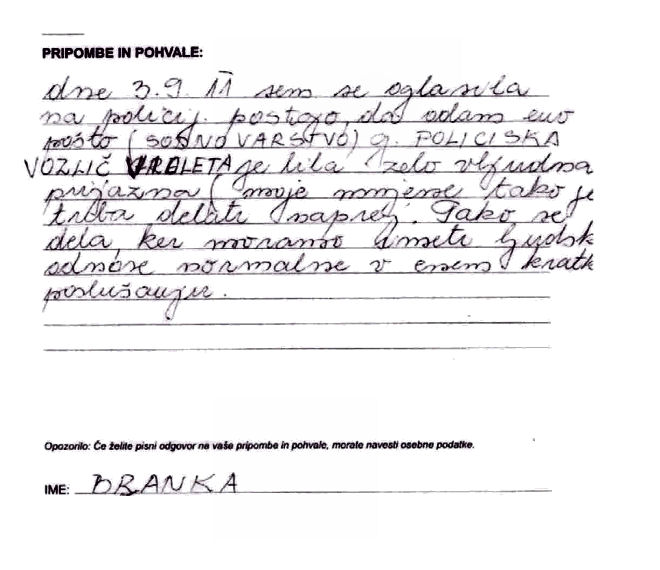 PRIPOMBE IN POHVALE:
dne 3.9. 11 sem se oglasila
na policij. postajo, da odam eno
pošto (SODNO VARSTVO) g. POLICISKA
VOZLIČ VIOLETA je bila zelo vljudna
prijazna ( moje mnjenje tako je
treba delati naprej. Tako se
dela, ker moramo imeti ljudsk
odnose normalne v enem kratk
poslušanju.
Opozorilo: Če želite pisni odgovor na vaše pripombe in pohvale, morate navesti osebne podatke.
IME: BRANKA